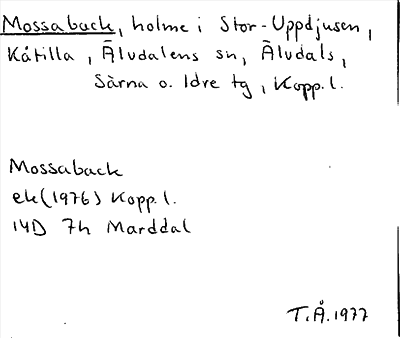 Mossaback, holme i Stor-Uppdjusen,
Kåtilla, Älvdalens sn, Älvdals,
Särna o. Idre tg, Kopp.l.
Mossaback
ek (1976) Kopp.l.
14D 7h Marddal
T.Å.1977